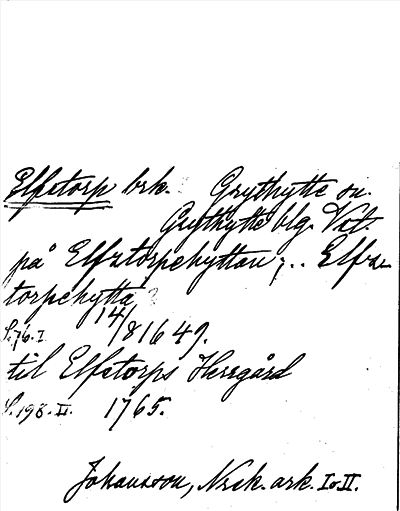 Elfstorp brk. Grythytte sn.
Grythytte blg. Vst.
på Elfztorpehyttan; .. Elfze
torpehytta
S. 76. I 14/8 1649.
til Elfstorps Herrgård
S. 198. II. 1765.
Johansson, Nrck. ark. I o. II.